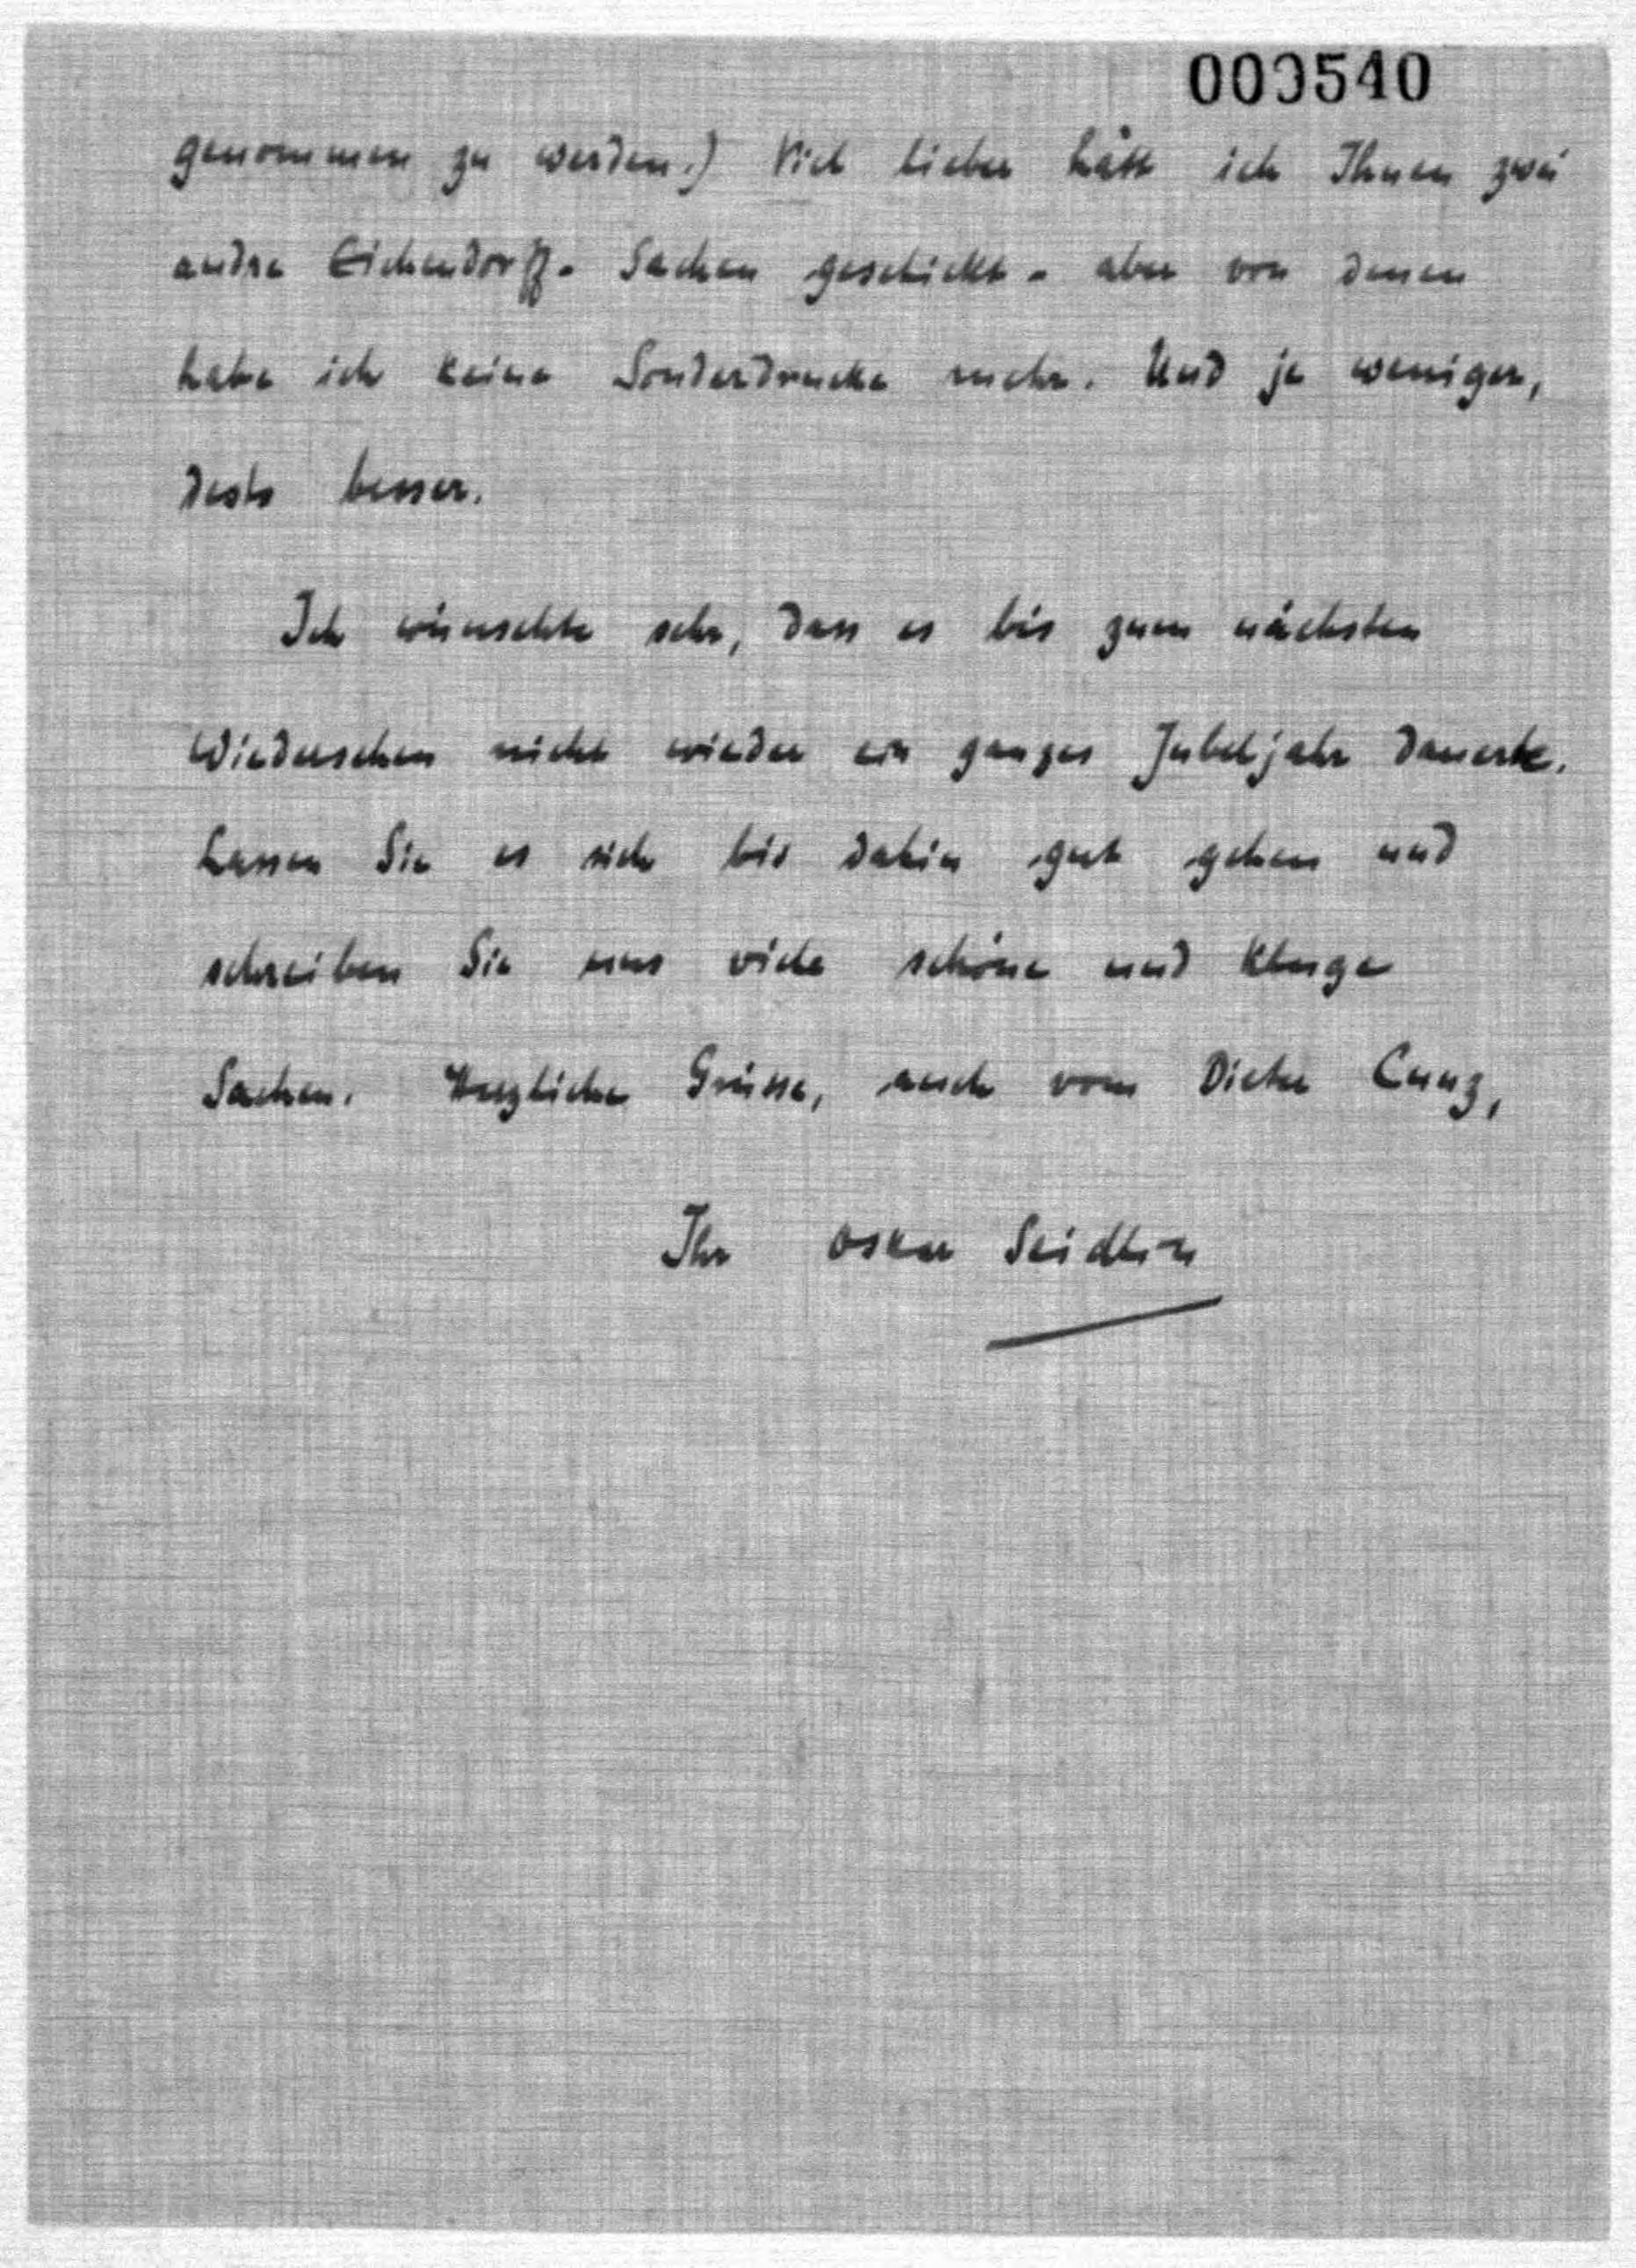 003540
genommen zu werden.) Viel lieber hätt ich Ihnen zwei
andre Eichendorff-Sachen geschickt - aber von denen
habe ich keine Sonderdrucke mehr. Und je weniger,
desto besser.
Ich wünschte sehr, dass es bis zum nächsten
Wiedersehen nicht wieder ein ganzes Jubeljahr dauerte.
Lassen Sie es sich bis dahin gut gehen und
schreiben Sie uns viele schöne und kluge
Sachen. Herzliche Grüsse, auch vom Dieter Cunz,
Ihr Oskar Seidlin